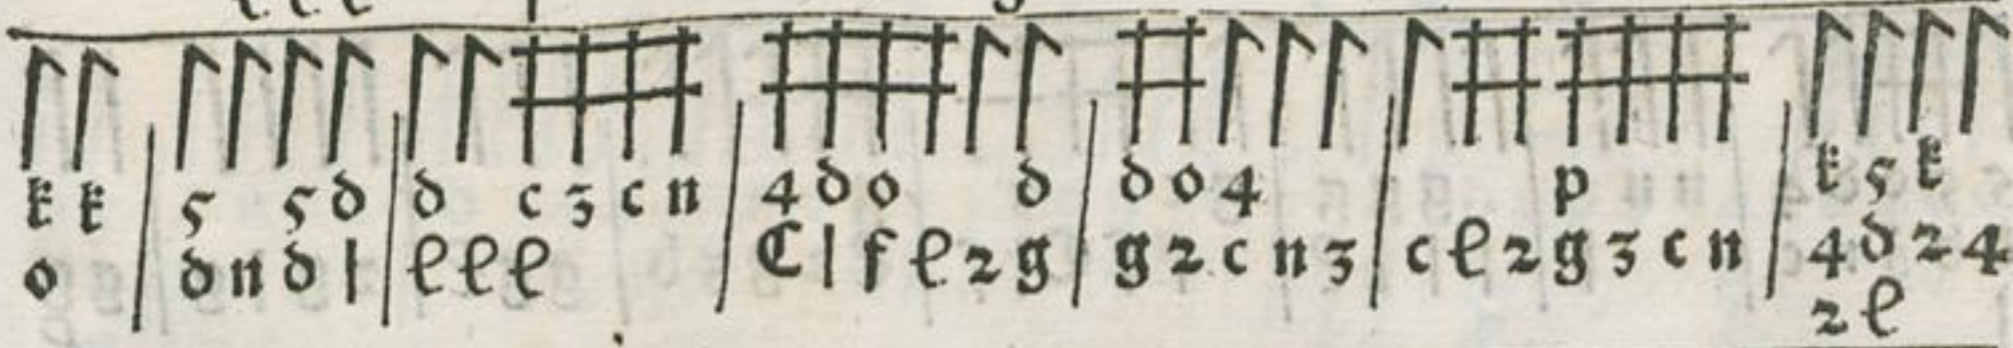 k k | 5 5 d | d c 3 c n | 4 d o d | d o 4 | p | k 5 k
o | d n d l | e e e | C l f e 2 g | g 2 c n 3 | c e 2 g 3 c n | 4 d 2 4
2 e